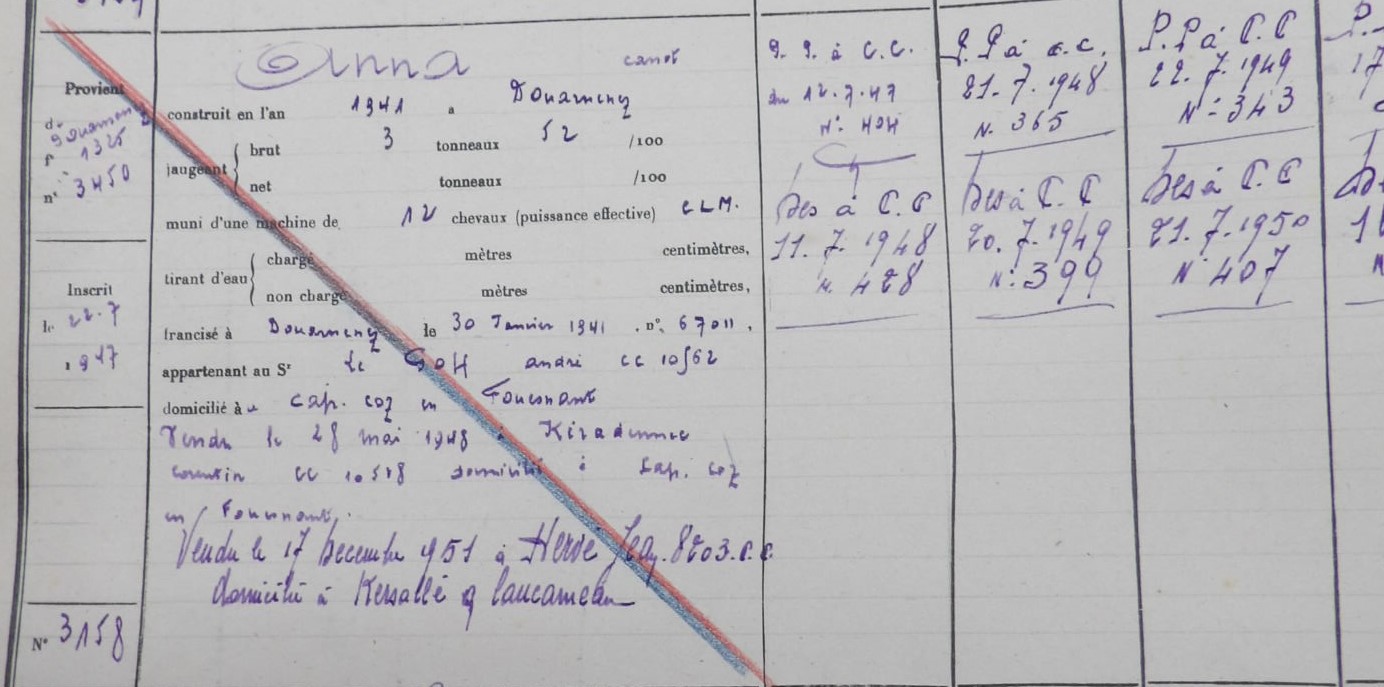 Provient
de Douarnenez
f° 1325
n° 3450
Inscrit
le 22.7
1947
N° 3158
Anna canot
construit en l'an 1941 a Douarnenez
jaugeant { brut 3 tonneaux 52 /100
net tonneaux /100
muni d'une machine de 12 chevaux (puissance effective) C L M.
tirant d'eau { chargé mètres centimètres,
non chargé mètres centimètres,
francisé à Douarnenez le 30 Janvier 1941 . n°. 67011,
appartenant au Sr Le Goff andré CC 10562
domicilié à Cap. Coz en Fouesnant
Vendu le 28 mai 1948 à
corentin CC 10518 domicilié à Cap. Coz
en Fouesnant.
Vendu le 17 Decembre 1951 à Herve Jean. 8203.C.C.
domicilié à Kersallé
P. P. à C.C.
du 12.7.47
N° 424
Des à C.C
11. 7. 1948
N. 428
P. P à C.C.
21. 7. 1948
N. 365
Des à C.C
20. 7. 1949
N: 399
P. P à C C
22. 7. 1949
N: 343
Des à C.C
21. 7. 1950
N 407
P.
17